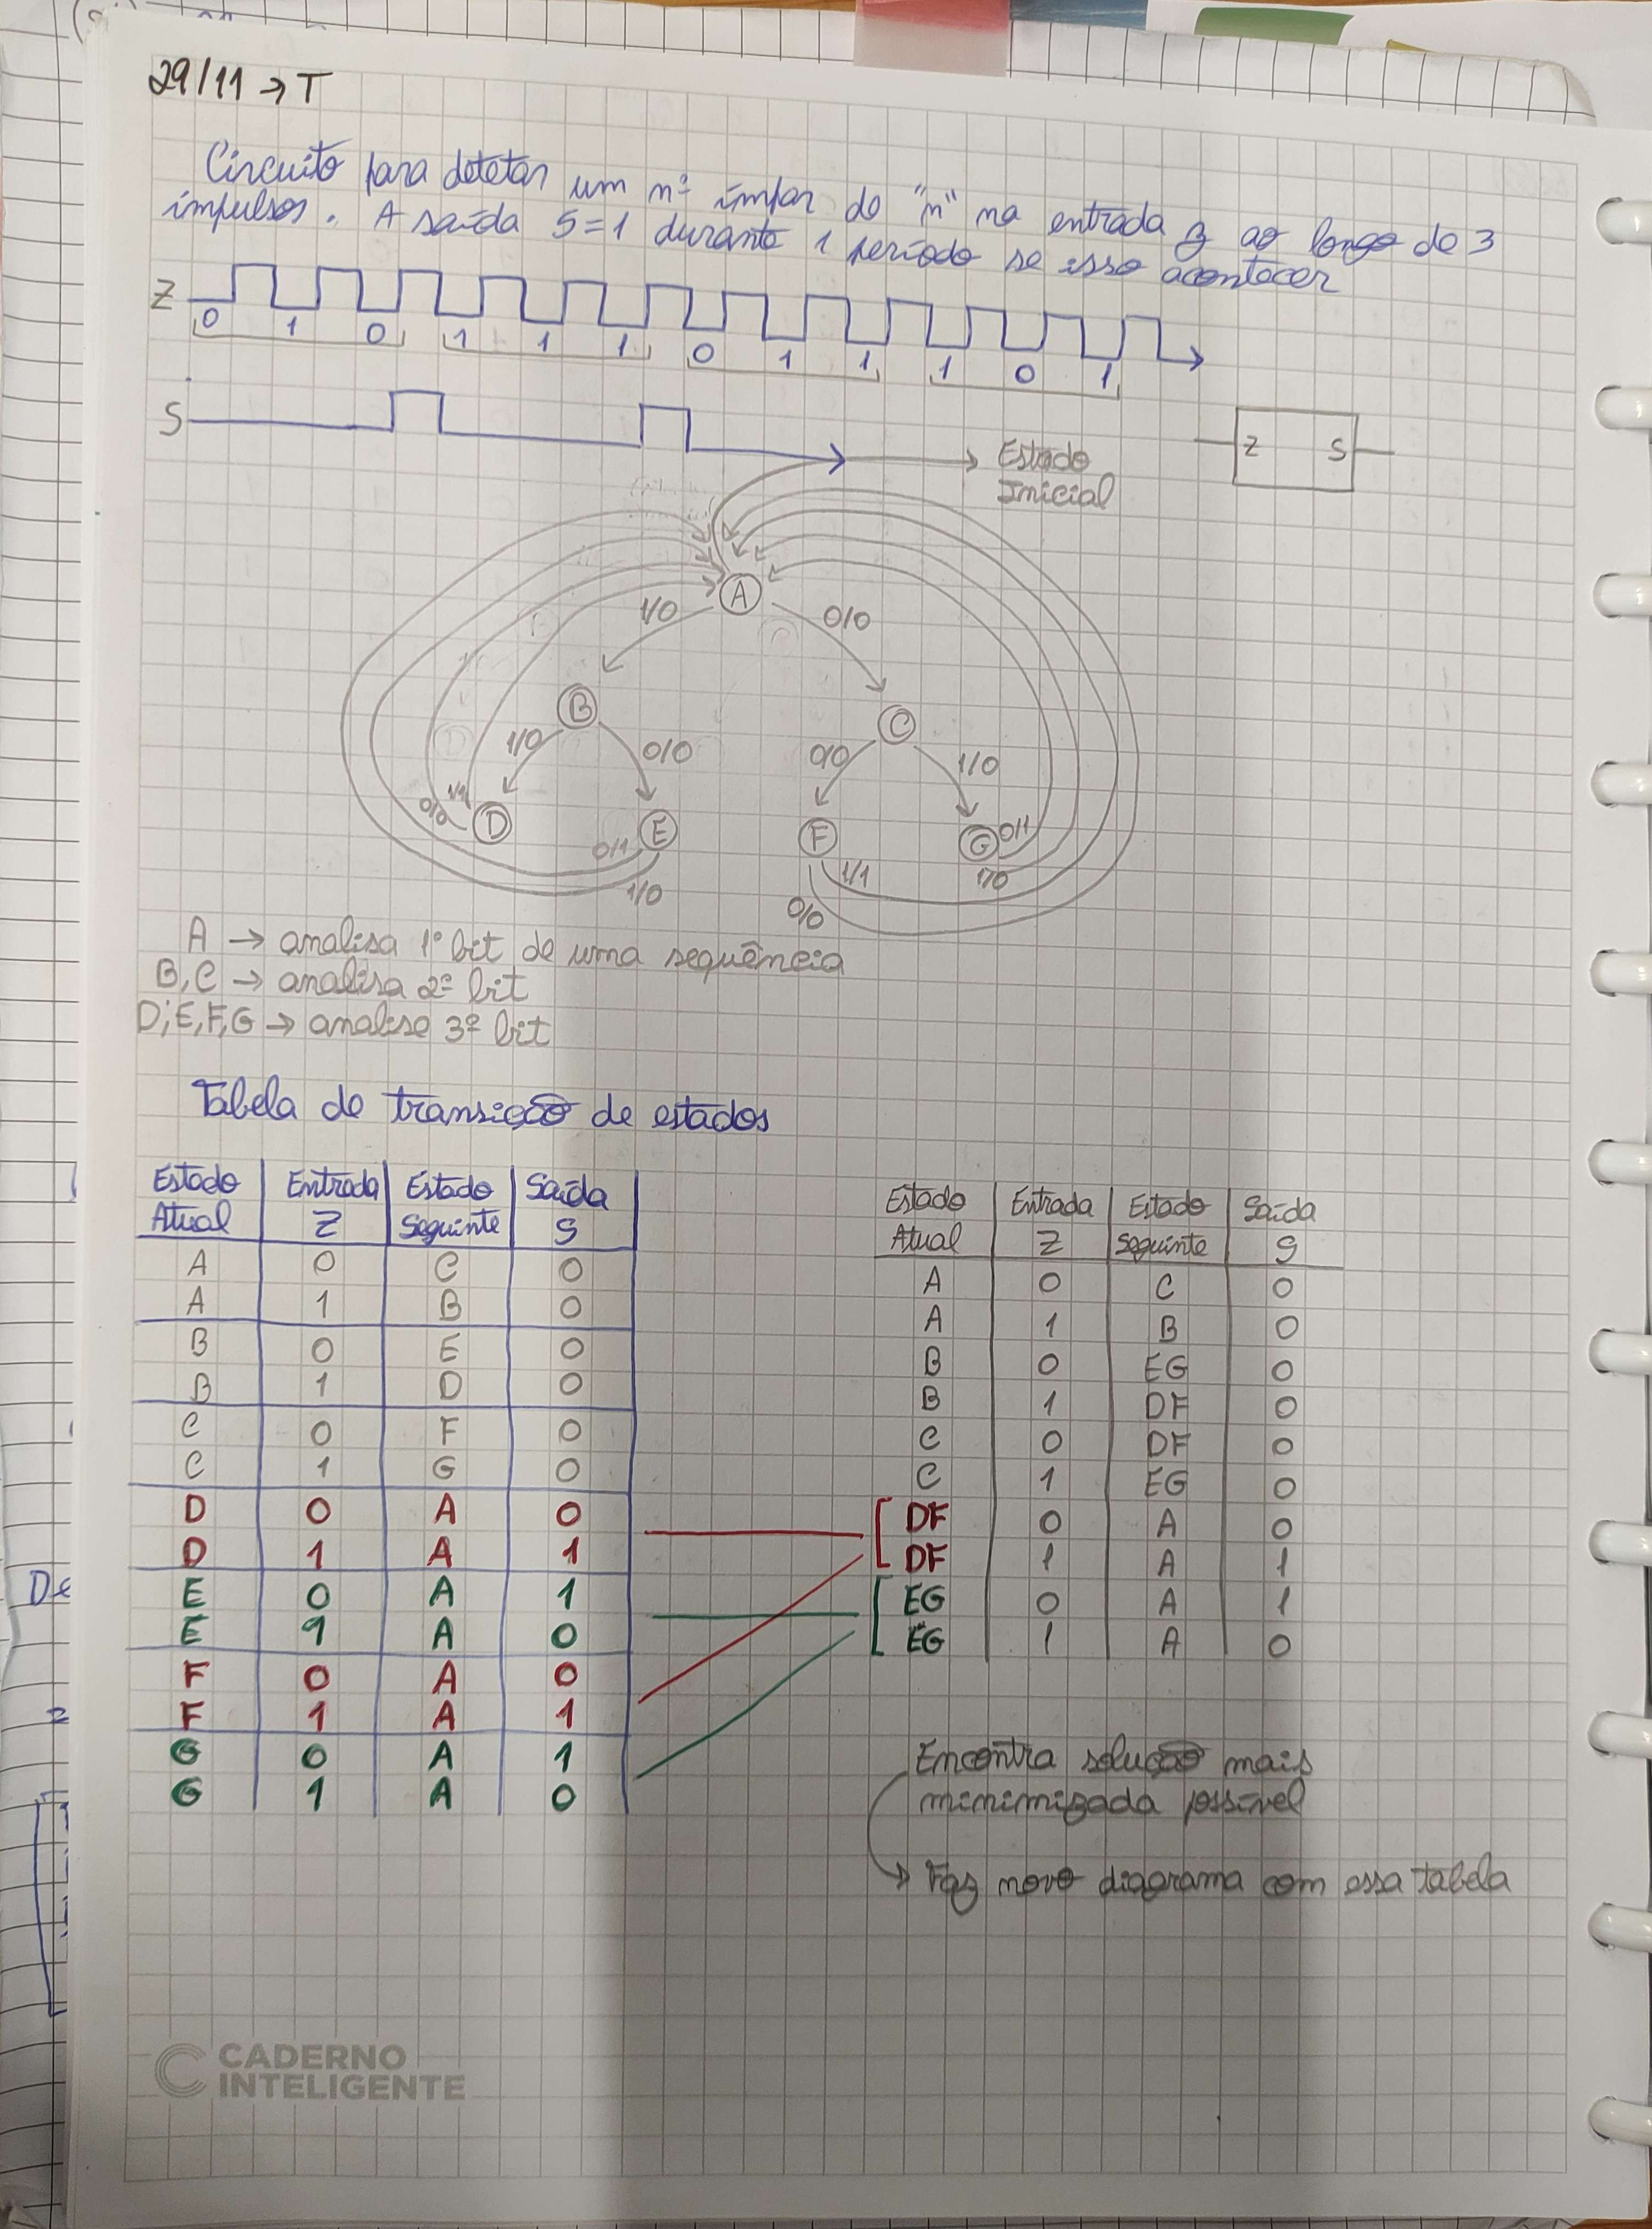 29/11 → T
Circuito para detetar um nº ímpar de "n" na entrada z ao longo de 3
impulsos. A saída S=1 durante 1 período se isso acontecer
Z
0 1 0 1 1 1 0 1 1 1 0 1
S
Estado
Inicial
Z S
A
1/0 0/0
B C
1/0 0/0 0/0 1/0
0/0 1/1 D E F G 0/1
0/1 1/1 1/0
1/0 0/0
A → analisa 1º bit de uma sequência
B,C → analisa 2º bit
D,E,F,G → analisa 3º bit
Tabela de transição de estados
Estado Atual | Entrada Z | Estado Seguinte | Saída S
A 0 C 0
A 1 B 0
B 0 E 0
B 1 D 0
C 0 F 0
C 1 G 0
D 0 A 0
D 1 A 1
E 0 A 1
E 1 A 0
F 0 A 0
F 1 A 1
G 0 A 1
G 1 A 0
Estado Atual | Entrada Z | Estado Seguinte | Saída S
A 0 C 0
A 1 B 0
B 0 EG 0
B 1 DF 0
C 0 DF 0
C 1 EG 0
DF 0 A 0
DF 1 A 1
EG 0 A 1
EG 1 A 0
Encontra solução mais
minimizada possível
→ Faz novo diagrama com essa tabela
CADERNO
INTELIGENTE